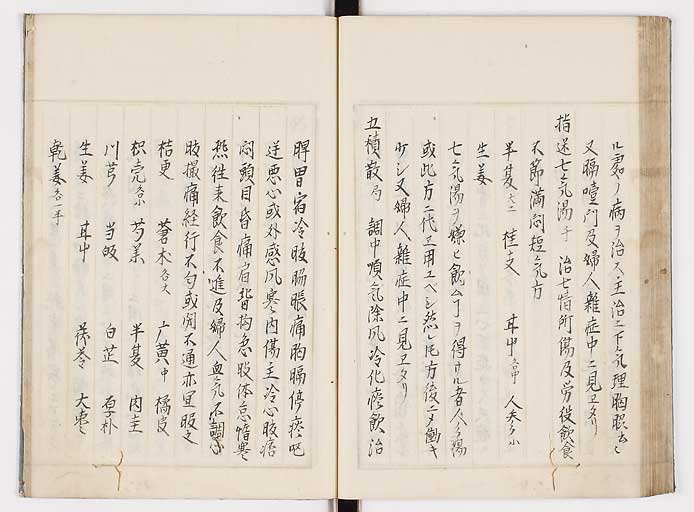 ル気ノ病ヲ治ス主治ニ下気理胸眼去々
又膈噎門及婦人雜症中ニ見ヱタリ
指迷七気湯 治七情所傷及労役飲食
不節満悶短気方
半夏大 桂支 甘草各中 人参小
生姜
七気湯ヲ嫌ヒ飲ムヿヲ得サル者人参湯
或此方ニ代ヱ用ユベシ然レ𪜈方後ニタ働キ
少シ又婦人雜症中ニ見ヱタリ
五積散局 調中順気除風冷化痰飲治
脾胃宿冷肢腸脹痛胸膈停痰呕
逆悪心或外感風寒内傷主冷心肢痞
悶頭目昏痛肩背拘急肢体怠惰寒
熱往来飲食不進及婦人血気不調心
肢撮痛経行不匀或閉不通亦宜服之
桔更 蒼朮各大 广黄中 橘皮
枳壳各小 芍薬 半夏 肉圭
川芎 当皈 白芷 厚朴
生姜 甘草 茯苓 大棗
乾姜各一半